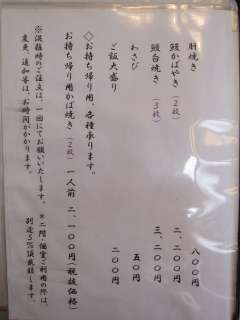 肝焼き 八〇〇円
鰻かばやき(2枚) 二、二〇〇円
鰻白焼き(3枚) 三、二〇〇円
わさび 五〇円
ご飯大盛り 二〇〇円
◇お持ち帰り用、各種承ります。
お持ち帰り用かば焼き(2枚) 一人前 二、一〇〇円(税抜価格)
※混雑時のご注文は、一回にてお願いいたします。 ※二階・個室ご利用の際は、
変更、追加等は、お時間がかかります。 別途5%頂戴致します。